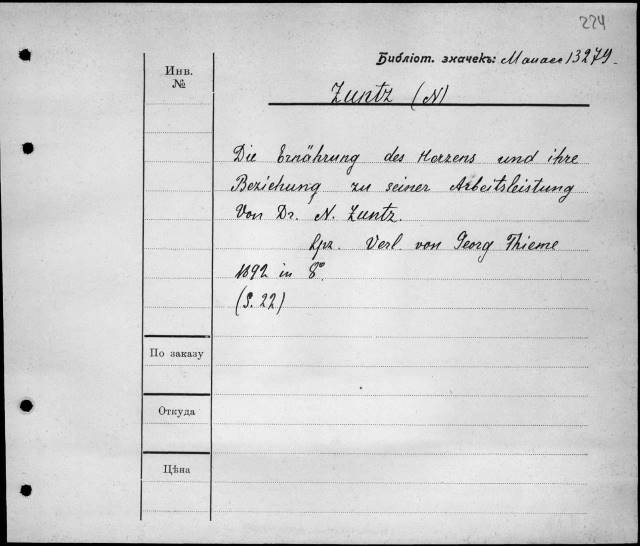 224
Библіот. значекъ: Манасс 13279.
Инв.
№
Zuntz (N)
Die Ernährung des Herzens und ihre
Beziehung zu seiner Arbeitsleistung
Von Dr. N. Zuntz.
Lpz. Verl. von Georg Thieme
1892 in 8°.
(S. 22)
По заказу
Откуда
Цѣна